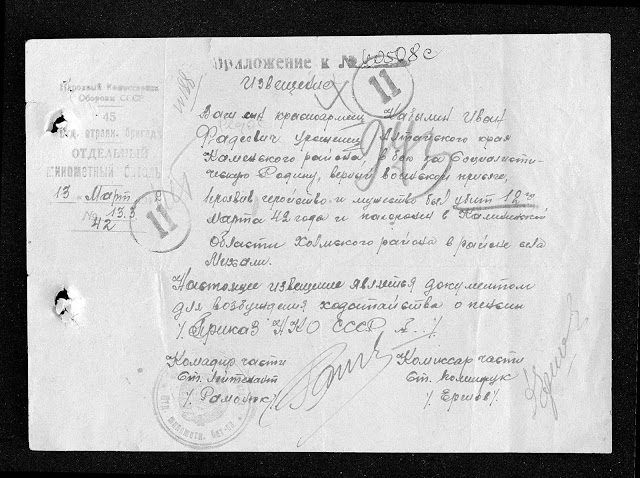 Приложение к № 40508с
Извещение
11
Народный Комиссариат
Обороны СССР
45
отдел. стрелк. бригада
ОТДЕЛЬНЫЙ
МИНОМЕТНЫЙ
13 Март
№ 13.3
42
11
Ваш сын красноармеец Иван
Фадеевич уроженец Алтайского края
Каменского района, в бою за Социалисти-
ческую Родину, верный воинской присяге,
проявив геройство и мужество был убит 12го
Марта 42 года и похоронен в Калининской
Области Холмского района в районе села
Михали.
Настоящее извещение является документом
для возбуждения ходатайства о пенсии
/Приказ НКО СССР №../
Командир части
Ст. Лейтенант
Комиссар части
Ст. Политрук
/Ершов/